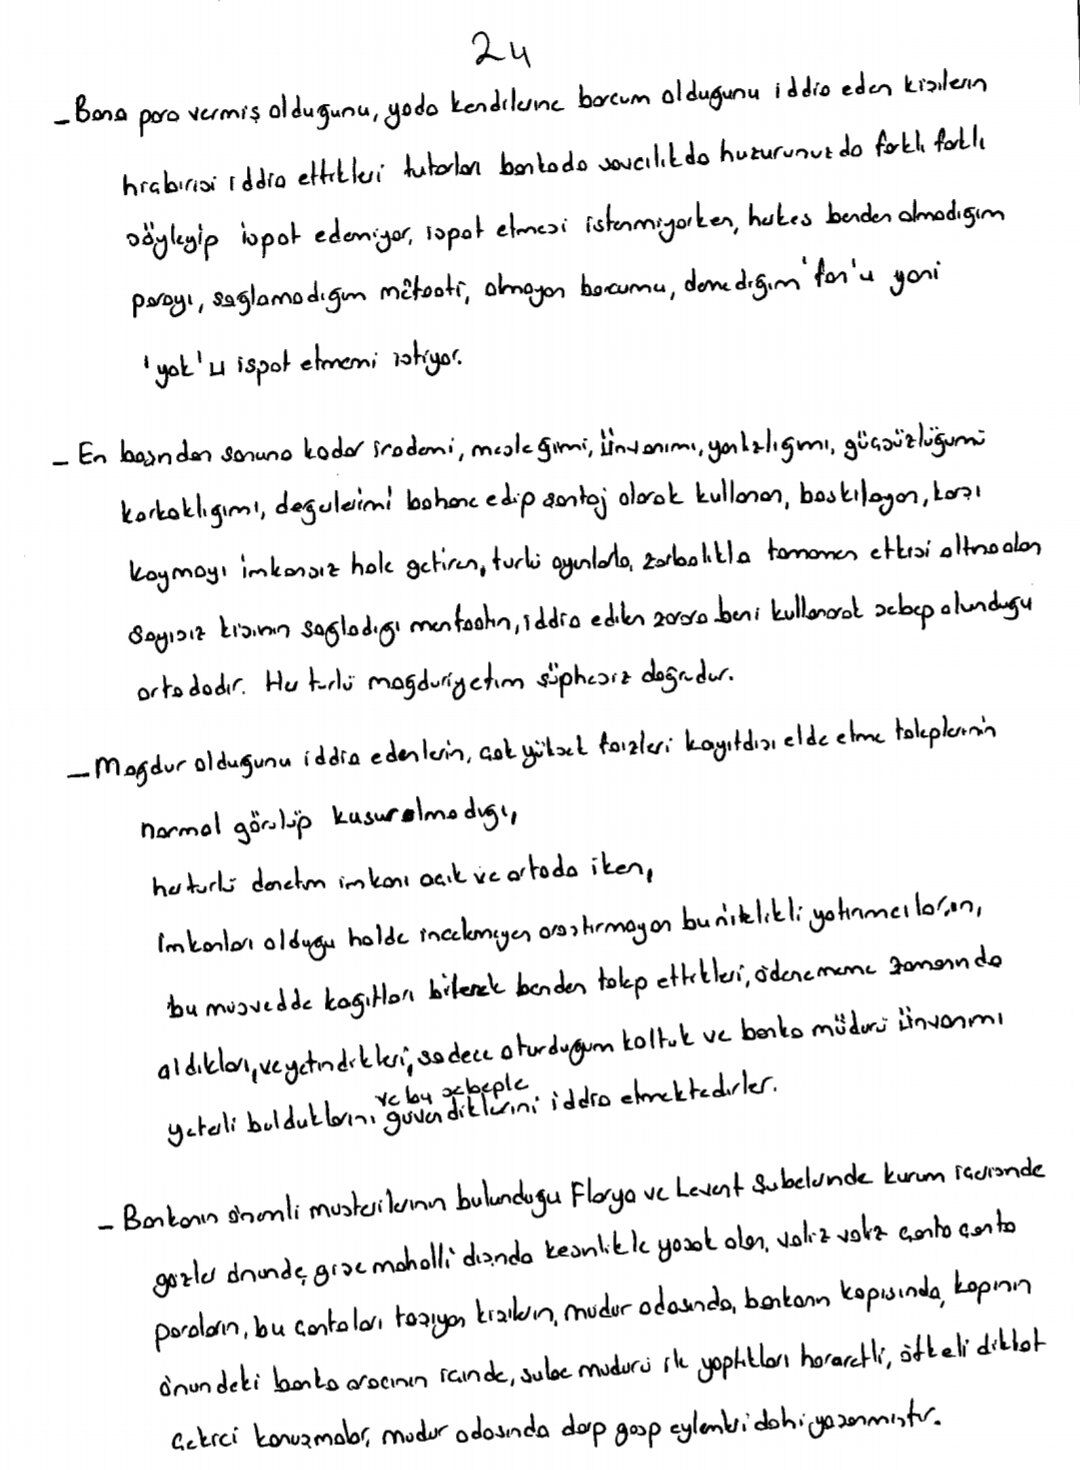 24
- Bana para vermiş olduğunu, yada kendilerine borcum olduğunu iddia eden kişilerin
hiçbirisi iddia ettikleri tutarları bankada savcılıkda huzurunuzda farklı farklı
söyleyip ispat edemiyor, ispat etmesi istenmiyorken, herkes benden almadığım
parayı, sağlamadığım menfaati, olmayan borcumu, denedığım 'fon'u yani
'yok'u ispat etmemi istiyor.
- En başından sonuna kadar irademi, mesleğimi, ünvanımı, yalnızlığımı, güçsüzlüğümü
korkaklığımı, değerlerimi bahane edip şantaj olarak kullanan, baskılayan, karşı
koymayı imkansız hale getiren, türlü oyunlarla, zorbalıkla tamamen etkisi altına alan
sayısız kişinin sağladığı menfaatin, iddia edilen zarara beni kullanarak sebep olunduğu
ortadadır. Her türlü mağduriyetim şüphesiz doğrudur.
- Mağdur olduğunu iddia edenlerin, çok yüksek faizleri kayıtdışı elde etme taleplerinin
normal görülüp kusur olmadığı,
her türlü denetim imkanı açık ve ortada iken,
imkanları olduğu halde incelemeyen araştırmayan bu nitelikli yatırımcıların,
bu müsvedde kağıtları bilerek benden talep ettikleri, ödenememe zamanında
aldıkları, ve yetindikleri, sadece oturduğum koltuk ve banka müdürü ünvanımı
yeterli bulduklarını ve bu sebeple güvendiklerini iddia etmektedirler.
- Bankanın önemli müşterilerinin bulunduğu Florya ve Levent şubelerinde kurum içerisinde
gözler önünde, gişe mahalli dışında kesinlikle yasak olan, valiz valiz çanta çanta
paraların, bu çantaları taşıyan kişilerin, müdür odasında, bankanın kapısında, kapının
önündeki banka aracının içinde, şube müdürü ile yaptıkları hararetli, öfkeli dikkat
çekici konuşmalar, müdür odasında darp gasp eylemleri dahi yaşanmıştır.